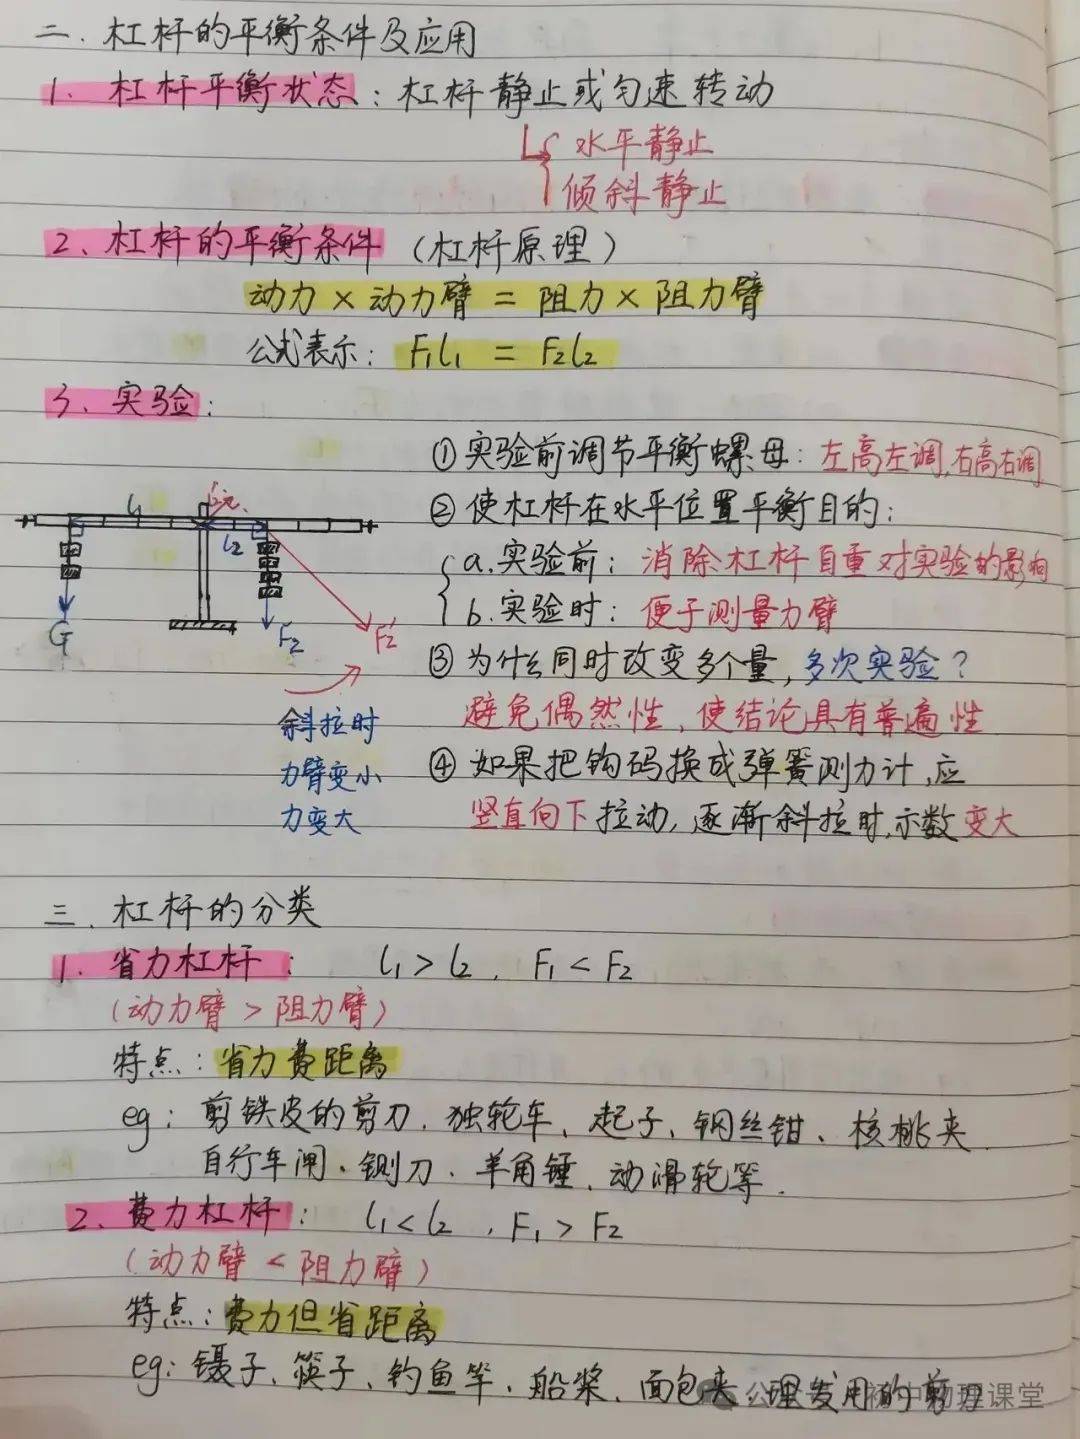 二、杠杆的平衡条件及应用
1、杠杆平衡状态：杠杆静止或匀速转动
水平静止
倾斜静止
2、杠杆的平衡条件（杠杆原理）
动力×动力臂＝阻力×阻力臂
公式表示：F₁l₁ ＝ F₂l₂
3、实验：
①实验前调节平衡螺母：左高左调,右高右调
②使杠杆在水平位置平衡目的：
a.实验前：消除杠杆自重对实验的影响
b.实验时：便于测量力臂
③为什么同时改变多个量,多次实验？
避免偶然性,使结论具有普遍性
④如果把钩码换成弹簧测力计,应
竖直向下拉动,逐渐斜拉时,示数变大
l₁
l₂
G
F₂
F₂′
斜拉时
力臂变小
力变大
三、杠杆的分类
1、省力杠杆： l₁＞l₂ , F₁＜F₂
（动力臂＞阻力臂）
特点：省力费距离
eg：剪铁皮的剪刀、独轮车、起子、钢丝钳、核桃夹
自行车闸、铡刀、羊角锤、动滑轮等.
2、费力杠杆： l₁＜l₂ , F₁＞F₂
（动力臂＜阻力臂）
特点：费力但省距离
eg：镊子、筷子、钓鱼竿、船桨、面包夹、理发用的剪刀
公众号 初中物理课堂